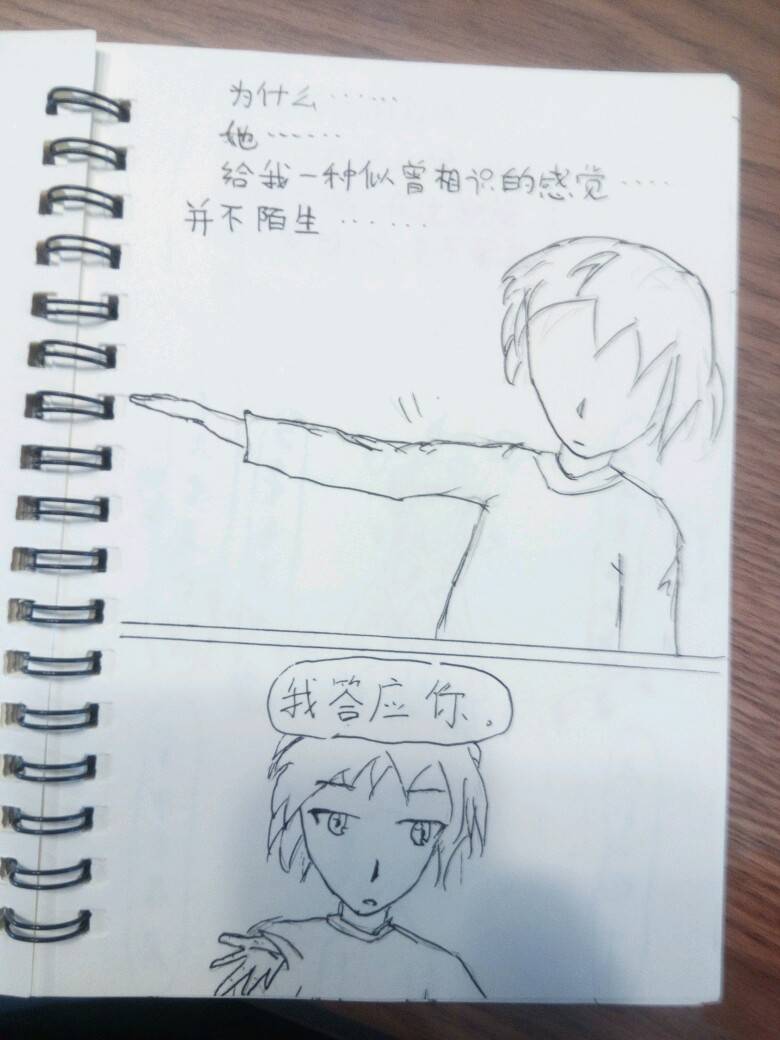 为什么……
她……
给我一种似曾相识的感觉……
并不陌生……
我答应你。